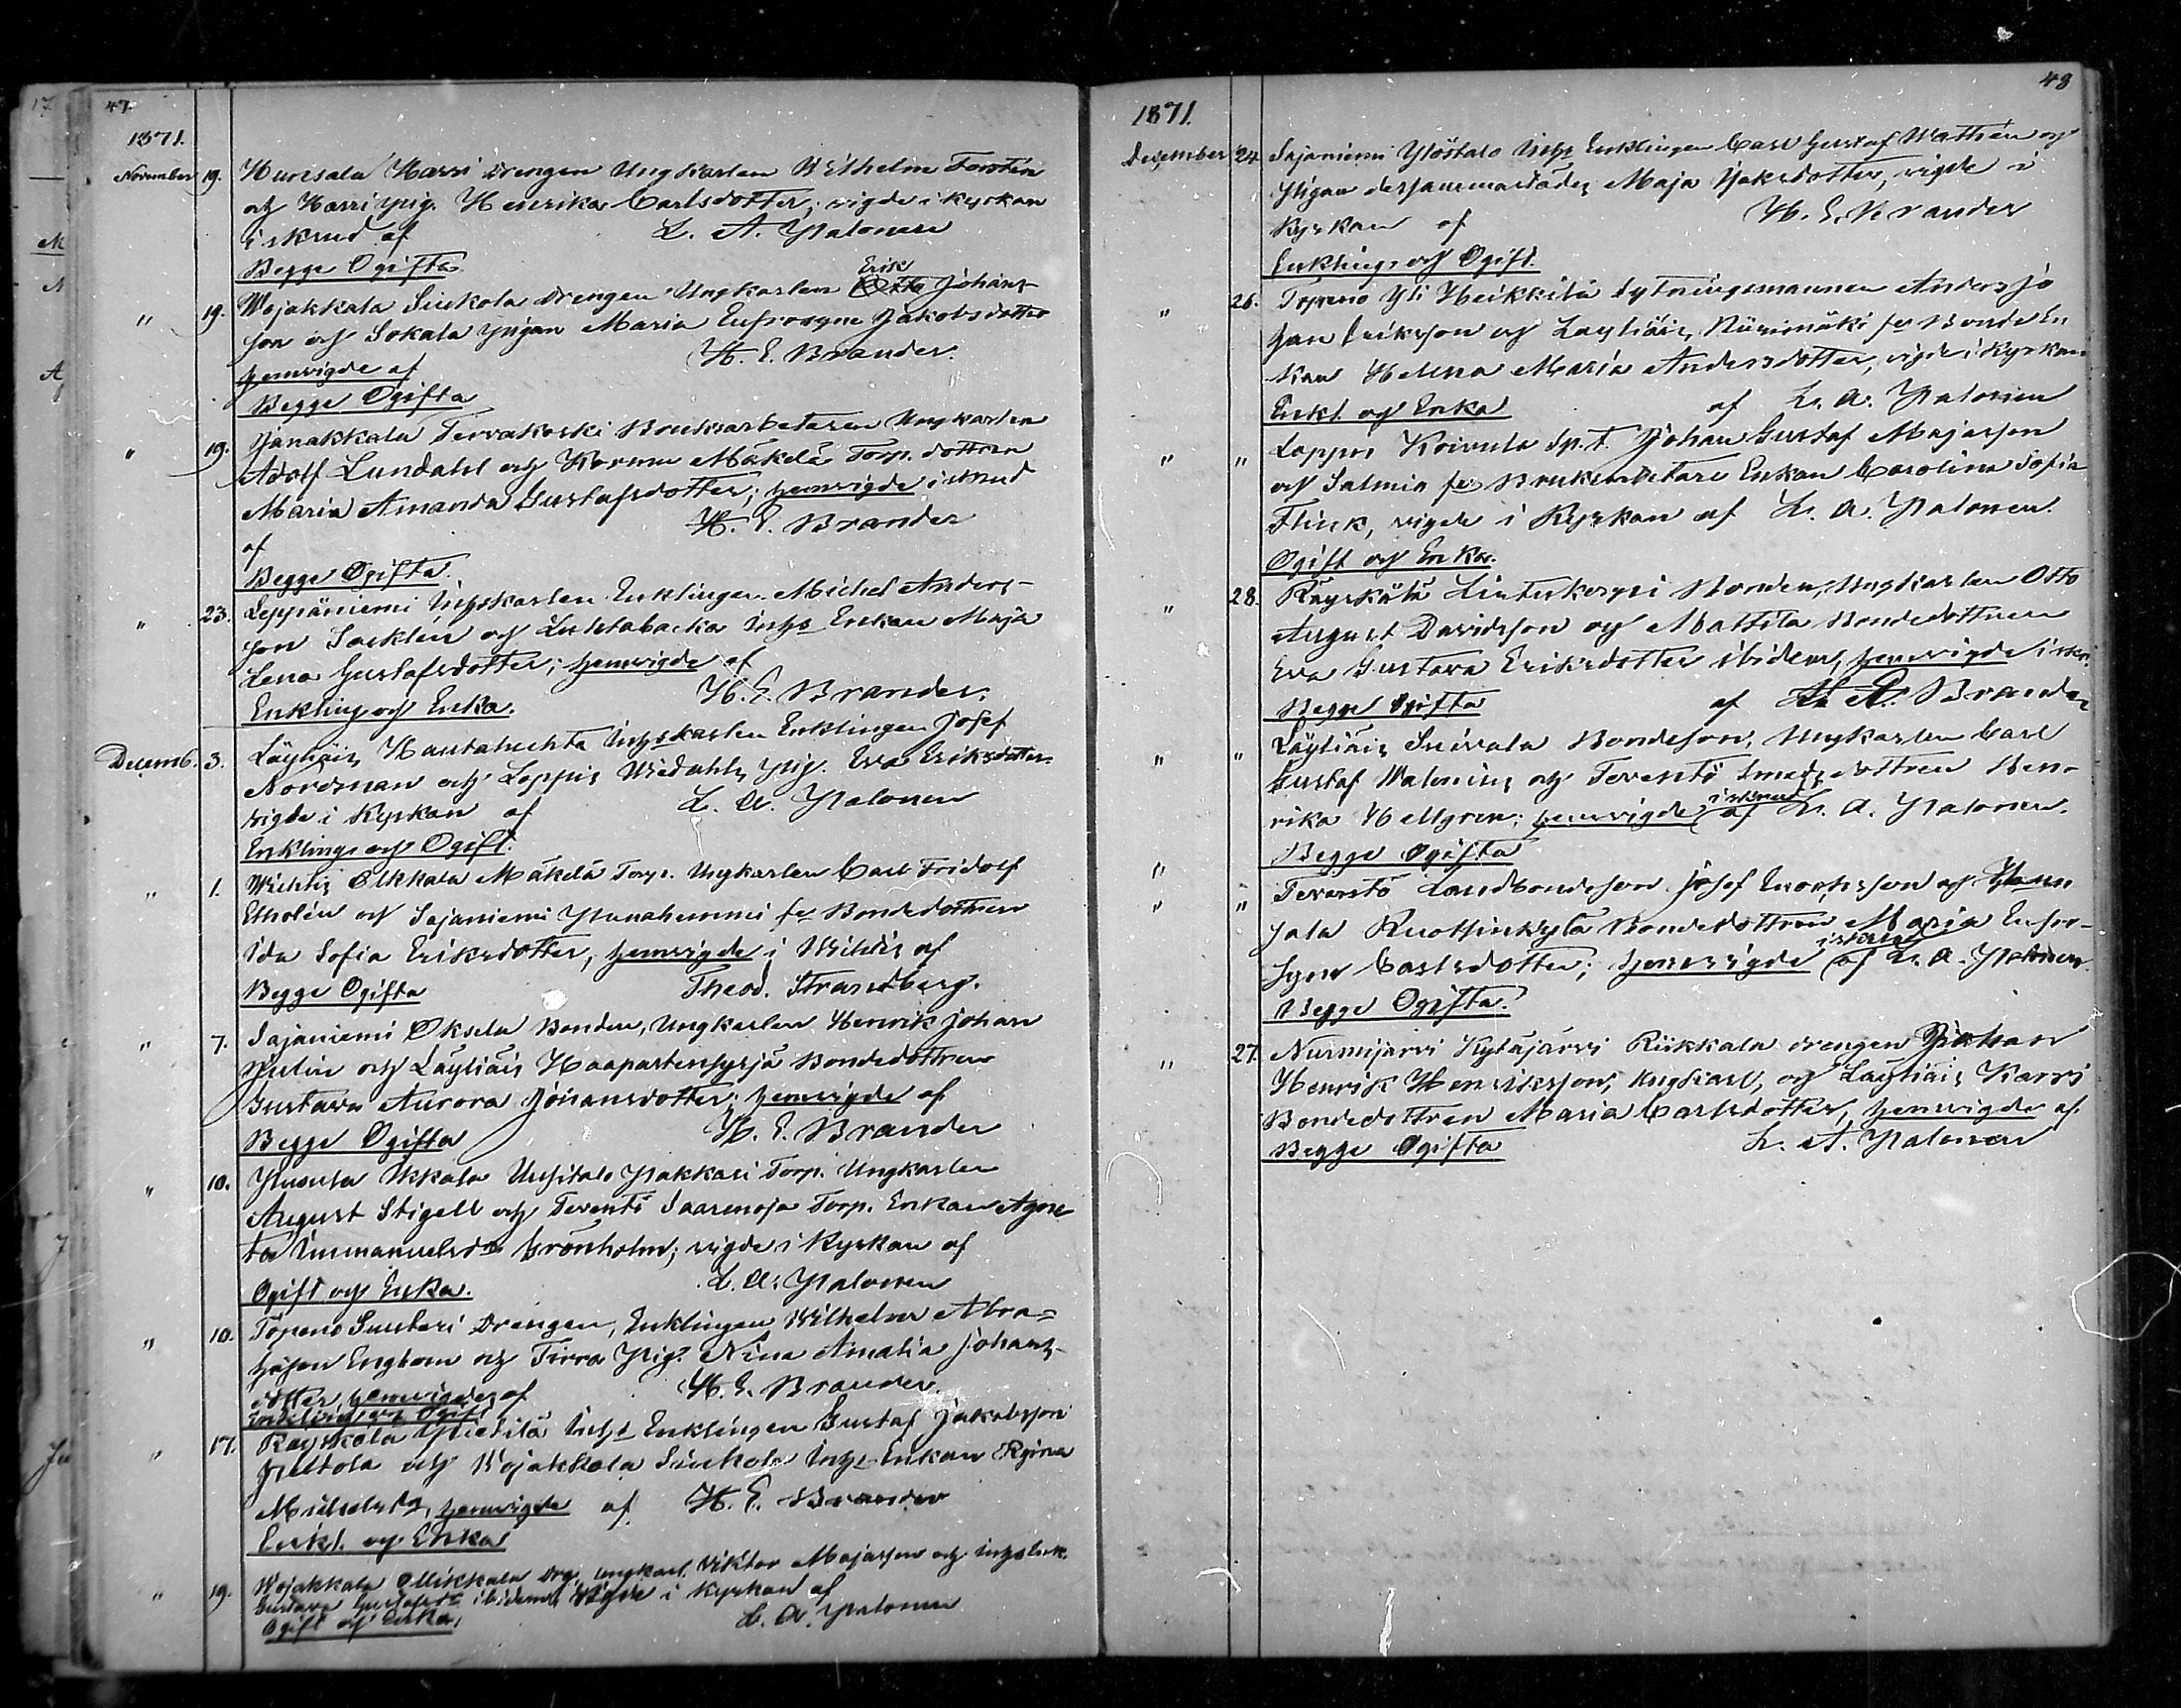 47.
1871.
November 19. Hunsala Harri drengen Ungkarlen Wilhelm Forstén
och Harri pig. Henrika Carlsdotter; vigde i kyrkan
i skrud af L. A. Palonen
Begge Ogifta
" 19. Wojakkala Siukola drengen Ungkarlen Erik Johans-
son och Sokala pigan Maria Eufrosyne Jakobsdotter
hemvigde af H. E. Brander.
Begge Ogifta
" 19. Janakkala Tervakoski Bruksarbetaren Ungkarlen
Adolf Lundahl och Kormu Mäkelä Torp. dottren
Maria Amanda Gustafsdotter; hemvigde i skrud
af H. E. Brander
Begge Ogifta.
" 23. Leppäniemi Inhyskarlen Enklingen Michel Anders-
son Saeklin och Luhtabacka Inhs Enkan Maja
Lena Gustafsdotter; hemvigde af
Enkling och Enka. H. E. Brander.
Decemb. 3. Läyliäis Hautaluhta Inhyskarlen Enklingen Josef
Nordman och Loppis Wedahls pig. Eva Eriksdotter
vigde i Kyrkan af L. A. Palonen
Enkling och Ogift.
" 1. Wichtis Olkkala Mäkelä Torp. Ungkarlen Carl Fridolf
Etholén och Sajaniemi fd Bondedottren
Ida Sofia Eriksdotter, hemvigde i Wichtis af
Begge Ogifta Theod. Strandberg.
" 7. Sajaniemi Oksela Bonden, Ungkarlen Henrik Johan
och Läyliäis Haapastensyrjä Bondedottren
Gustava Aurora Johansdotter; hemvigde af
Begge Ogifta H. E. Brander
" 10. Pusula Ikkala Uusitalo Pakkari Torp. Ungkarlen
August Stigell och Teventö Saarenoja Torp. Enkan Agne
ta Immanuelsdr Grönholm; vigde i Kyrkan af
Ogift och Enka. L. A. Palonen
" 10. Topeno Suuteri Drengen, Enklingen Wilhelm Abra-
hamson Engbom och Tirra Pig. Nina Amalia Johans-
dotter, hemvigde af H. E. Brander.
Enkling och Ogift
" 17. Räyskälä Pietilä Inhs Enklingen Gustaf Jakobsson
Juttola och Wojakkala Siukola Inhs Enkan Regina
Michelsdr, hemvigde af H. E. Brander
Enkl. och Enka
" 19. Wojakkala Ollikkala drg. ungkarl. Viktor Majasson och inhs enk.
Gustava Gustafsdr ibidem, Vigde i Kyrkan af
Ogift och Enka. L. A. Palonen
48
1871.
December 24. Sajaniemi Ylöstalo Inhs Enklingen Carl Gustaf Wathén och
Pigan dersammastädes Maja Isaksdotter, vigde i
Kyrkan af H. E. Brander
Enkling och Ogift.
" 26. Topeno Yli Heikkilä Sytningsmannen Anders Jo
han Eriksson och Läyliäis Niinimäki fd Bonde En
kan Helena Maria Andersdotter, vigde i Kyrkan
Enkl. och Enka af L. A. Palonen
" " Loppis Koivula Sp. T. Johan Gustaf Majasson
och Salmia fd Bruksarbetare Enkan Carolina Sofia
Flink, vigde i Kyrkan af L. A. Palonen.
Ogift och Enka.
" 28. Räyskälä Linterkorpi Bonden, Ungkarlen Otto
August Davidsson och Mattila Bondedottren
Eva Gustava Eriksdotter ibidem, hemvigde i skr.
Begge Ogifta af Brander
" " Läyliäis Suivala Bondeson, Ungkarlen Carl
Gustaf Walenius och Teventö Smedsdottren Hen-
rika Hellgren; hemvigde i skrud af L. A. Palonen.
Begge Ogifta
" " Tevantö Landbondeson Josef Enochsson och
jala Ruotsinkylä Bondedottren Maria Eufro-
syne Carlsdotter; hemvigde i skrud af L. A. Palonen
Begge Ogifta.
" 27. Nurmijärvi Kytäjärvi Riikkala drengen Johan
Henrik Henriksson, Ungkarl, och Läyliäis Karri
Bondedottren Maria Carlsdotter, hemvigde af
Begge Ogifta L. A. Palonen